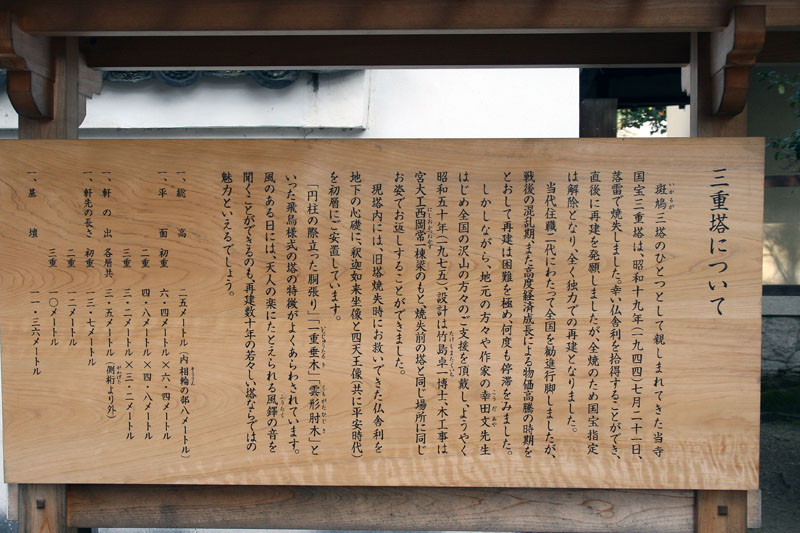 三重塔について
斑鳩三塔のひとつとして親しまれてきた当寺
国宝三重塔は、昭和十九年(一九四四)七月二十一日、
落雷で焼失しました。幸い仏舎利を拾得することができ、
直後に再建を発願しましたが、全焼のため国宝指定
は解除となり、全く独力での再建となりました。
当代住職二代にわたって全国を勧進行脚しましたが、
戦後の混乱期、また高度経済成長による物価高騰の時期を
とおして再建は困難を極め、何度も停滞をみました。
しかしながら、地元の方々や作家の幸田文先生
はじめ全国の沢山の方々のご支援を頂戴し、ようやく
昭和五十年(一九七五)、設計は竹島卓一博士、木工事は
宮大工西岡常一棟梁のもと、焼失前の塔と同じ場所に同じ
お姿でお返しすることができました。
現塔内には、旧塔焼失時にお救いできた仏舎利を
地下の心礎に、釈迦如来坐像と四天王像(共に平安時代)
を初層にご安置しています。
「円柱の際立った胴張り」「一重垂木」「雲形肘木」と
いった飛鳥様式の塔の特徴がよくあらわされています。
風のある日には、天人の楽にたとえられる風鐸の音を
聞くことができるのも、再建数十年の若々しい塔ならではの
魅力といえるでしょう。
一、総高 二五メートル(内相輪の部八メートル)
一、平面 初重 六・四メートル×六・四メートル
二重 四・八メートル×四・八メートル
三重 三・二メートル×三・二メートル
一、軒の出 各層共 三・五メートル(側桁より外)
一、軒先の長さ 初重 一三・七メートル
二重 一二メートル
三重 一〇メートル
一、基壇 一一・三六メートル